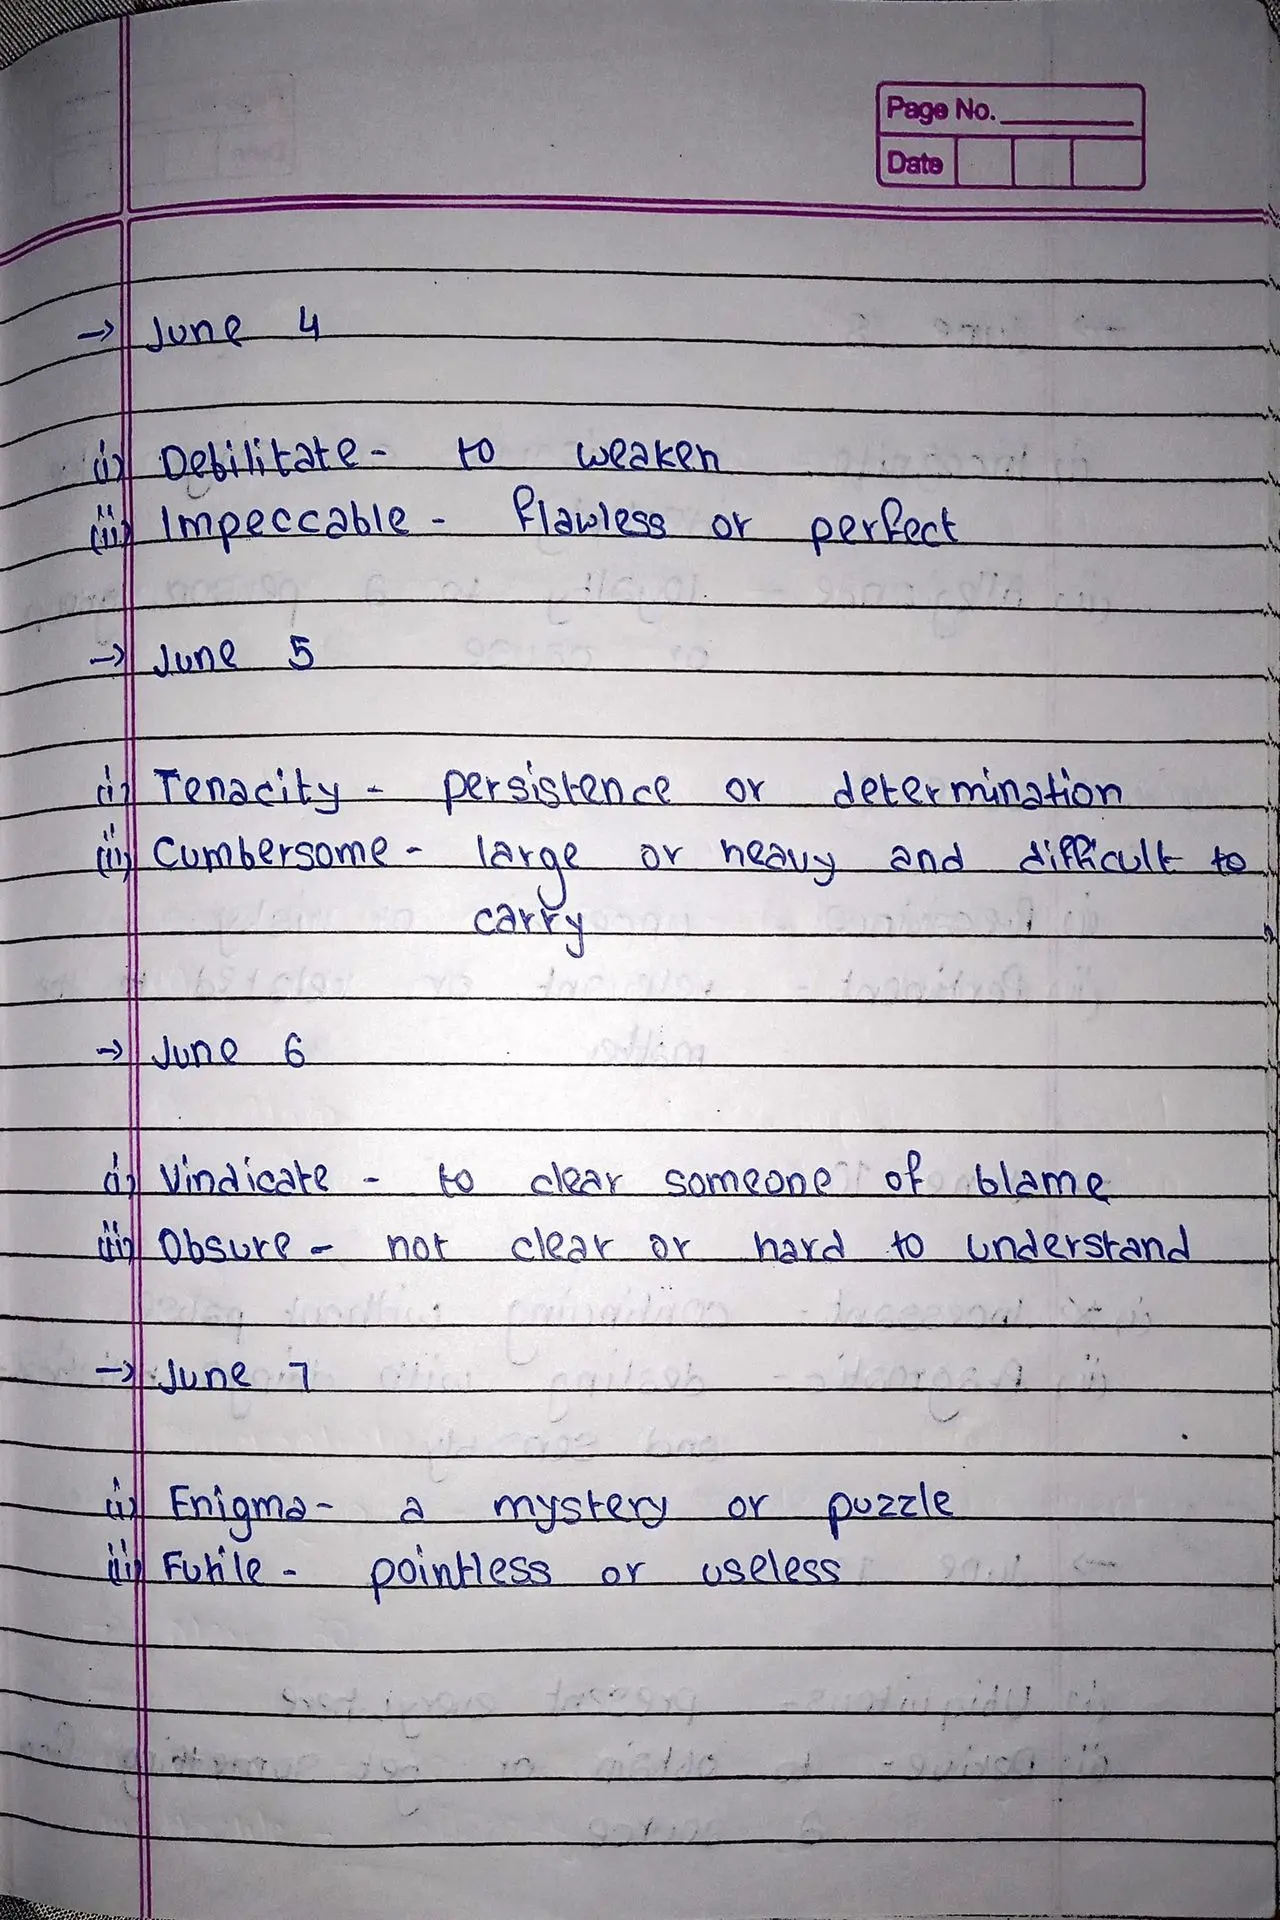 Page No.
Date
→ June 4
(i) Debilitate - to weaken
(ii) Impeccable - flawless or perfect
→ June 5
(i) Tenacity - persistence or determination
(ii) Cumbersome - large or heavy and difficult to
carry
→ June 6
(i) Vindicate - to clear someone of blame
(ii) Obsure - not clear or hard to understand
→ June 7
(i) Enigma - a mystery or puzzle
(ii) Futile - pointless or useless